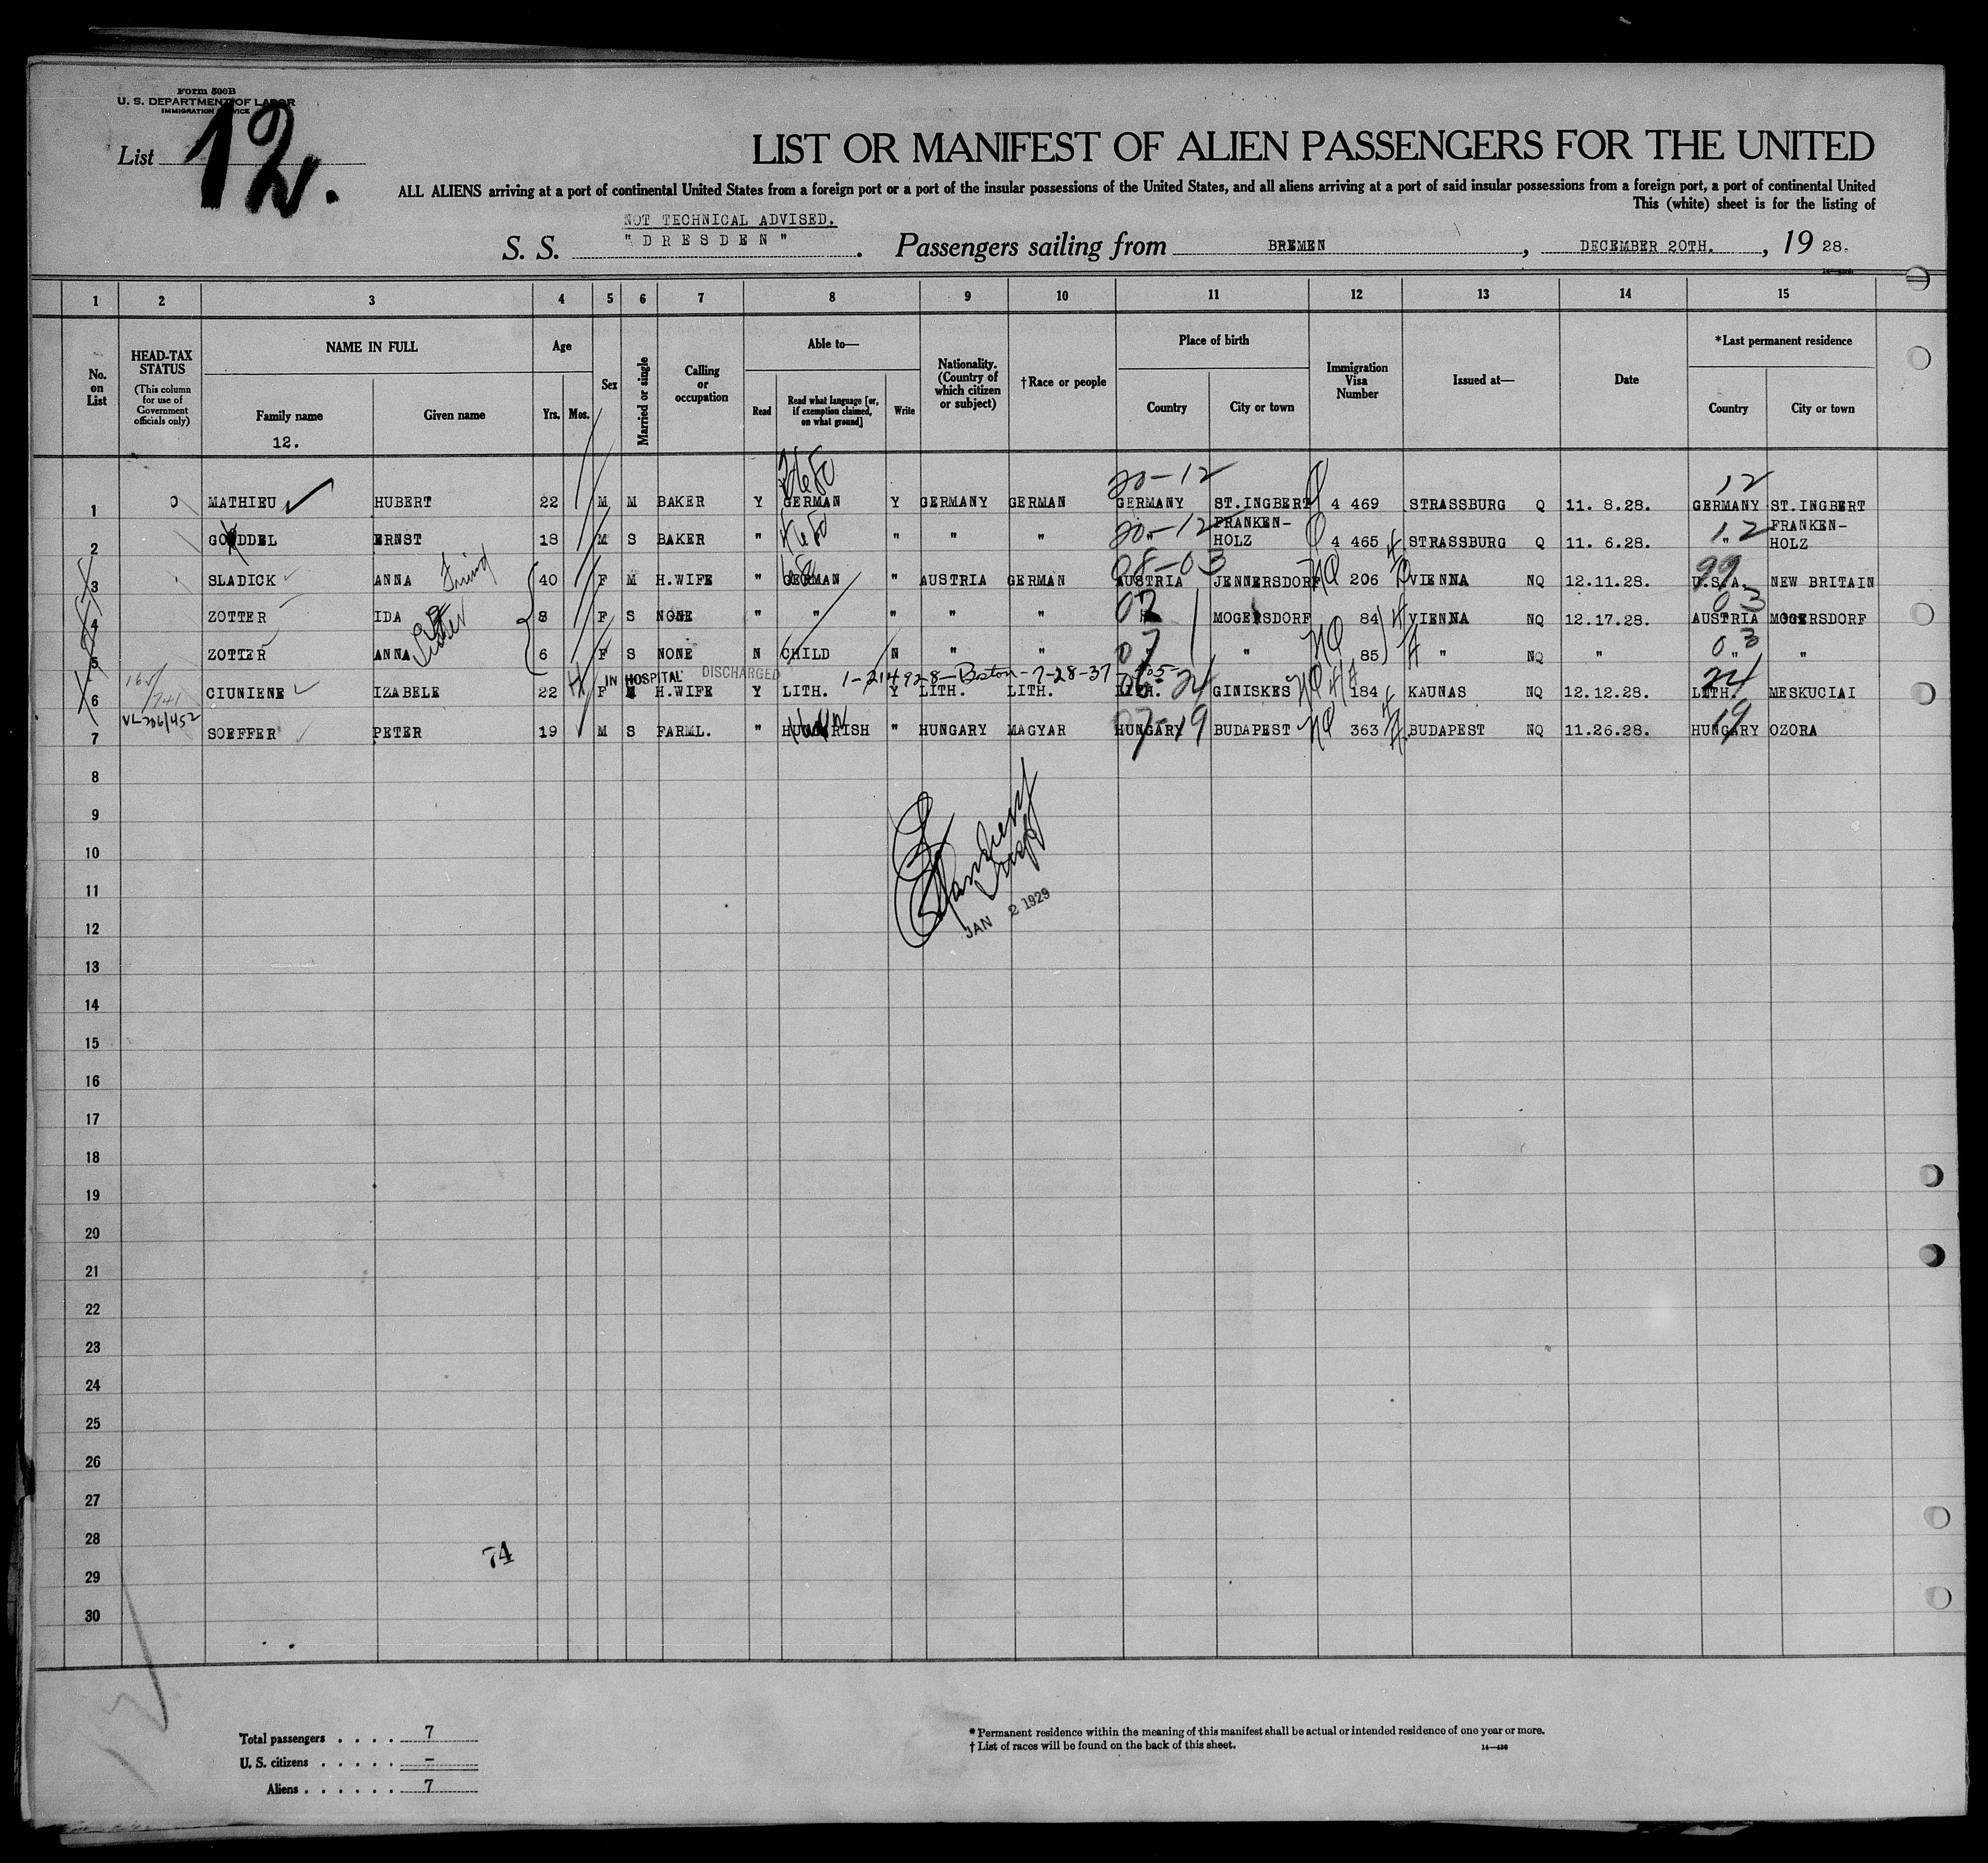 Form 500B
U. S. DEPARTMENT OF LABOR
IMMIGRATION SERVICE
List 12.
LIST OR MANIFEST OF ALIEN PASSENGERS FOR THE UNITED
ALL ALIENS arriving at a port of continental United States from a foreign port or a port of the insular possessions of the United States, and all aliens arriving at a port of said insular possessions from a foreign port, a port of continental United
This (white) sheet is for the listing of
NOT TECHNICAL ADVISED.
S. S. "DRESDEN". Passengers sailing from BREMEN, DECEMBER 20TH., 19 28.
1 2 3 4 5 6 7 8 9 10 11 12 13 14 15
No. on List
HEAD-TAX STATUS
(This column for use of Government officials only)
NAME IN FULL
Family name
12.
Given name
Age
Yrs. Mos.
Sex
Married or single
Calling or occupation
Able to—
Read
Read what language [or, if exemption claimed, on what ground]
Write
Nationality. (Country of which citizen or subject)
†Race or people
Place of birth
Country
City or town
Immigration Visa Number
Issued at—
Date
*Last permanent residence
Country
City or town
20-12 12
1 0 MATHIEU HUBERT 22 M M BAKER Y GERMAN Y GERMANY GERMAN GERMANY ST.INGBERT 4 469 STRASSBURG Q 11. 8.28. GERMANY ST.INGBERT
2 GODDEL ERNST 18 M S BAKER " " " " 20-12 " FRANKEN-HOLZ 4 465 STRASSBURG Q 11. 6.28. 12 " FRANKEN-HOLZ
3 SLADICK ANNA Friend 40 F M H.WIFE " GERMAN " AUSTRIA GERMAN 08-03 AUSTRIA JENNERSDORF NQ 206 VIENNA NQ 12.11.28. 99 U.S.A. NEW BRITAIN
4 ZOTTER IDA 8 F S NONE " " " " " 07 MOGERSDORF 84 VIENNA NQ 12.17.28. 03 AUSTRIA MOGERSDORF
5 ZOTTER ANNA Sister 6 F S NONE N CHILD N " " 07 " NQ 85 " NQ " 03 " "
165/741 IN HOSPITAL DISCHARGED 1-214928-Boston-7-28-37
6 CIUNIENE IZABELE 22 F M H.WIFE Y LITH. Y LITH. LITH. LITH. 24 GINISKES NQ 184 KAUNAS NQ 12.12.28. 24 LITH. MESKUCIAI
VL-206/452
7 SOEFFER PETER 19 M S FARML. " " HUNGARY MAGYAR 07-19 HUNGARY BUDAPEST NQ 363 BUDAPEST NQ 11.26.28. 19 HUNGARY OZORA
8
9
10
11
12
JAN 2 1929
13
14
15
16
17
18
19
20
21
22
23
24
25
26
27
28
74
29
30
Total passengers . . . . 7
U. S. citizens . . . . . –
Aliens . . . . . . 7
* Permanent residence within the meaning of this manifest shall be actual or intended residence of one year or more.
† List of races will be found on the back of this sheet.
14—430